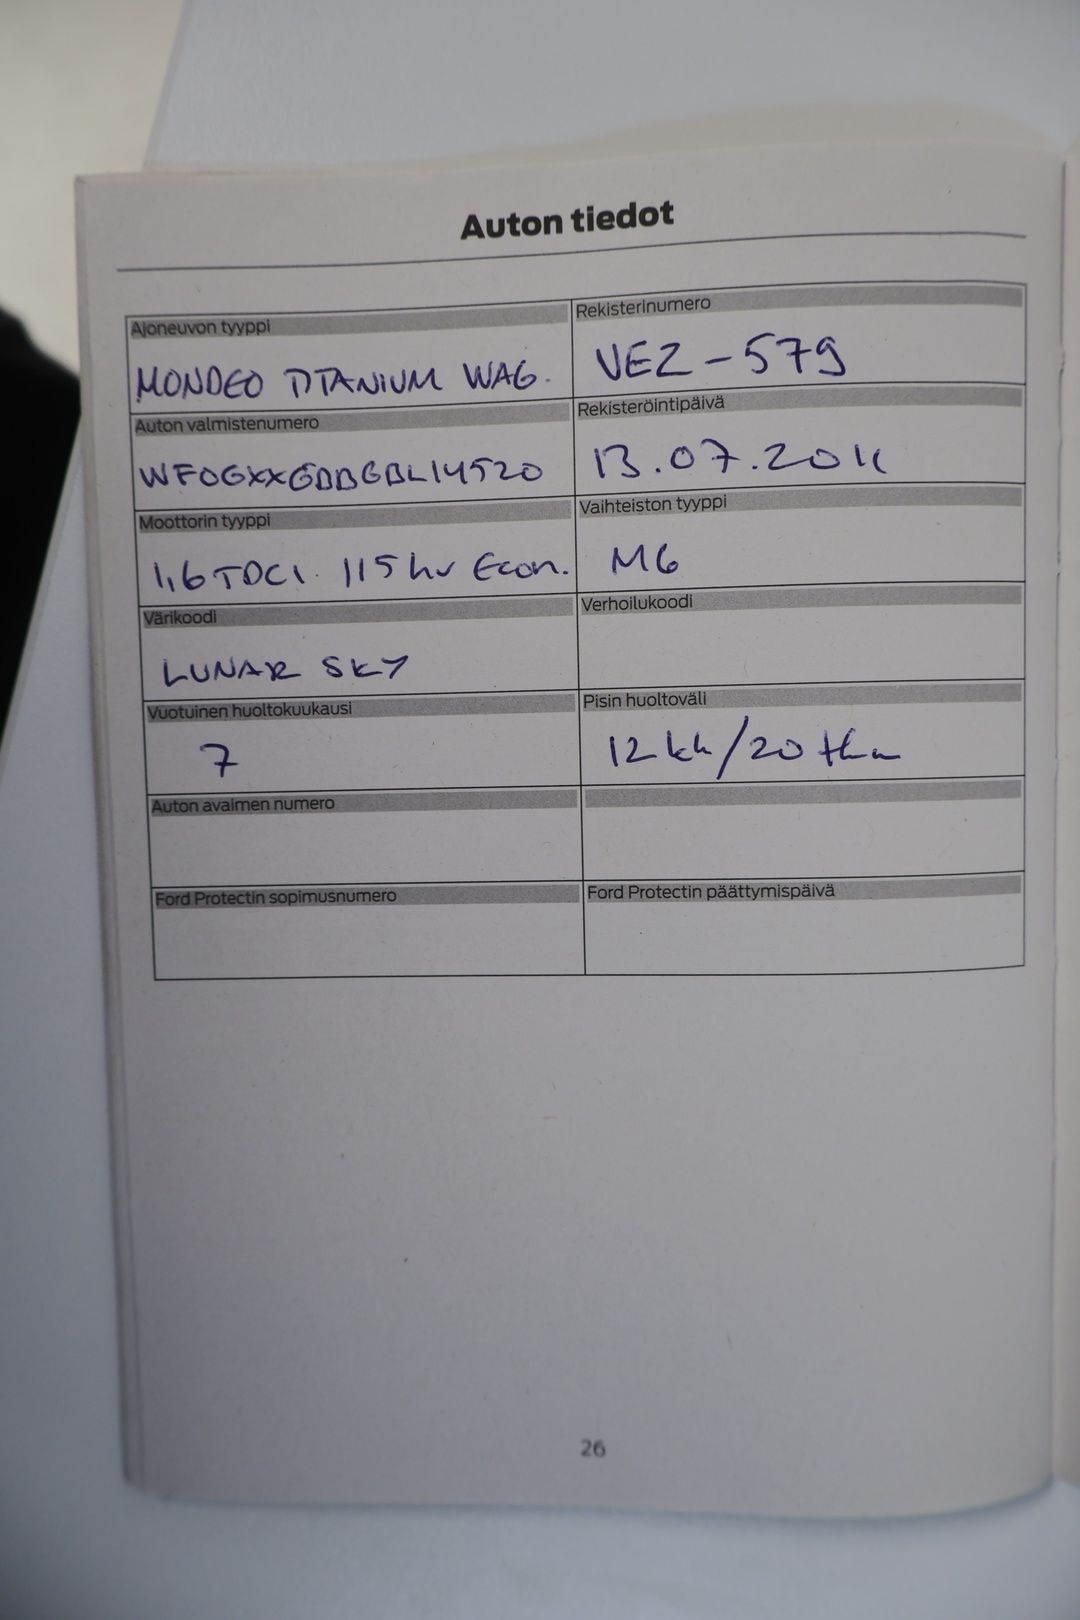 Auton tiedot
Ajoneuvon tyyppi
MONDEO TITANIUM WAG.
Rekisterinumero
VEZ-579
Auton valmistenumero
WF0GXXGBBGBL14520
Rekisteröintipäivä
13.07.2011
Moottorin tyyppi
1,6 TDCI 115 hv Econ.
Vaihteiston tyyppi
M6
Värikoodi
LUNAR SKY
Verhoilukoodi
Vuotuinen huoltokuukausi
7
Pisin huoltoväli
12 kk/20 tkm
Auton avaimen numero
Ford Protectin sopimusnumero
Ford Protectin päättymispäivä
26